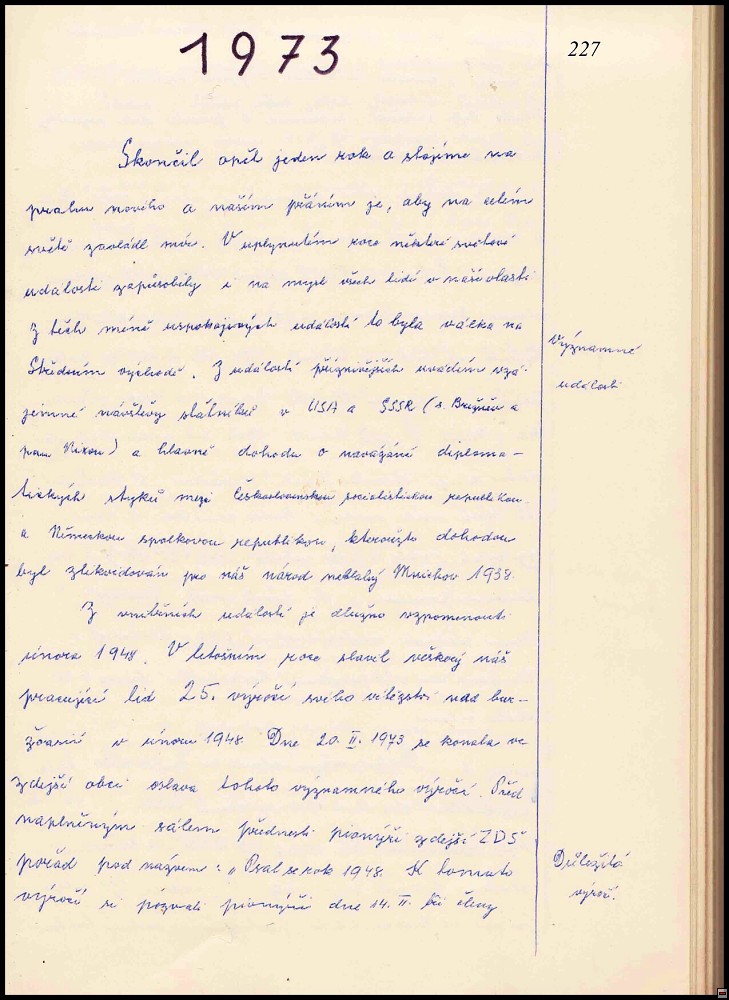 1973
227
Skončil opět jeden rok a stojíme na
prahu nového a naším přáním je, aby na celém
světě zavládl mír. V uplynulém roce některé světové
události zapůsobily i na mysl všech lidí v naší vlasti
Z těch méně uspokojivých událostí to byla válka na
Středním východě. Z událostí příznivějších uvádím vzá-
jemné návštěvy státníků v USA a SSSR (s. Brežněv a
pan Nixon) a hlavně dohodu o navázání diploma-
tických styků mezi Československou socialistickou republikou
a Německou spolkovou republikou, kteroužto dohodou
byl zlikvidován pro náš národ neblahý Mnichov 1938.
Významné
události
Z vnitřních událostí je dlužno vzpomenouti
února 1948. V letošním roce slavil veškerý náš
pracující lid 25. výročí svého vítězství nad bur-
žoasií v únoru 1948. Dne 20. II. 1973 se konala ve
zdejší obci oslava tohoto významného výročí. Před
naplněným sálem přednesli pionýři zdejší ZDŠ
pořad pod názvem: „Psal se rok 1948. K tomuto
výročí si pozvali pionýři dne 14. II. tři členy
Důležitá
výročí.